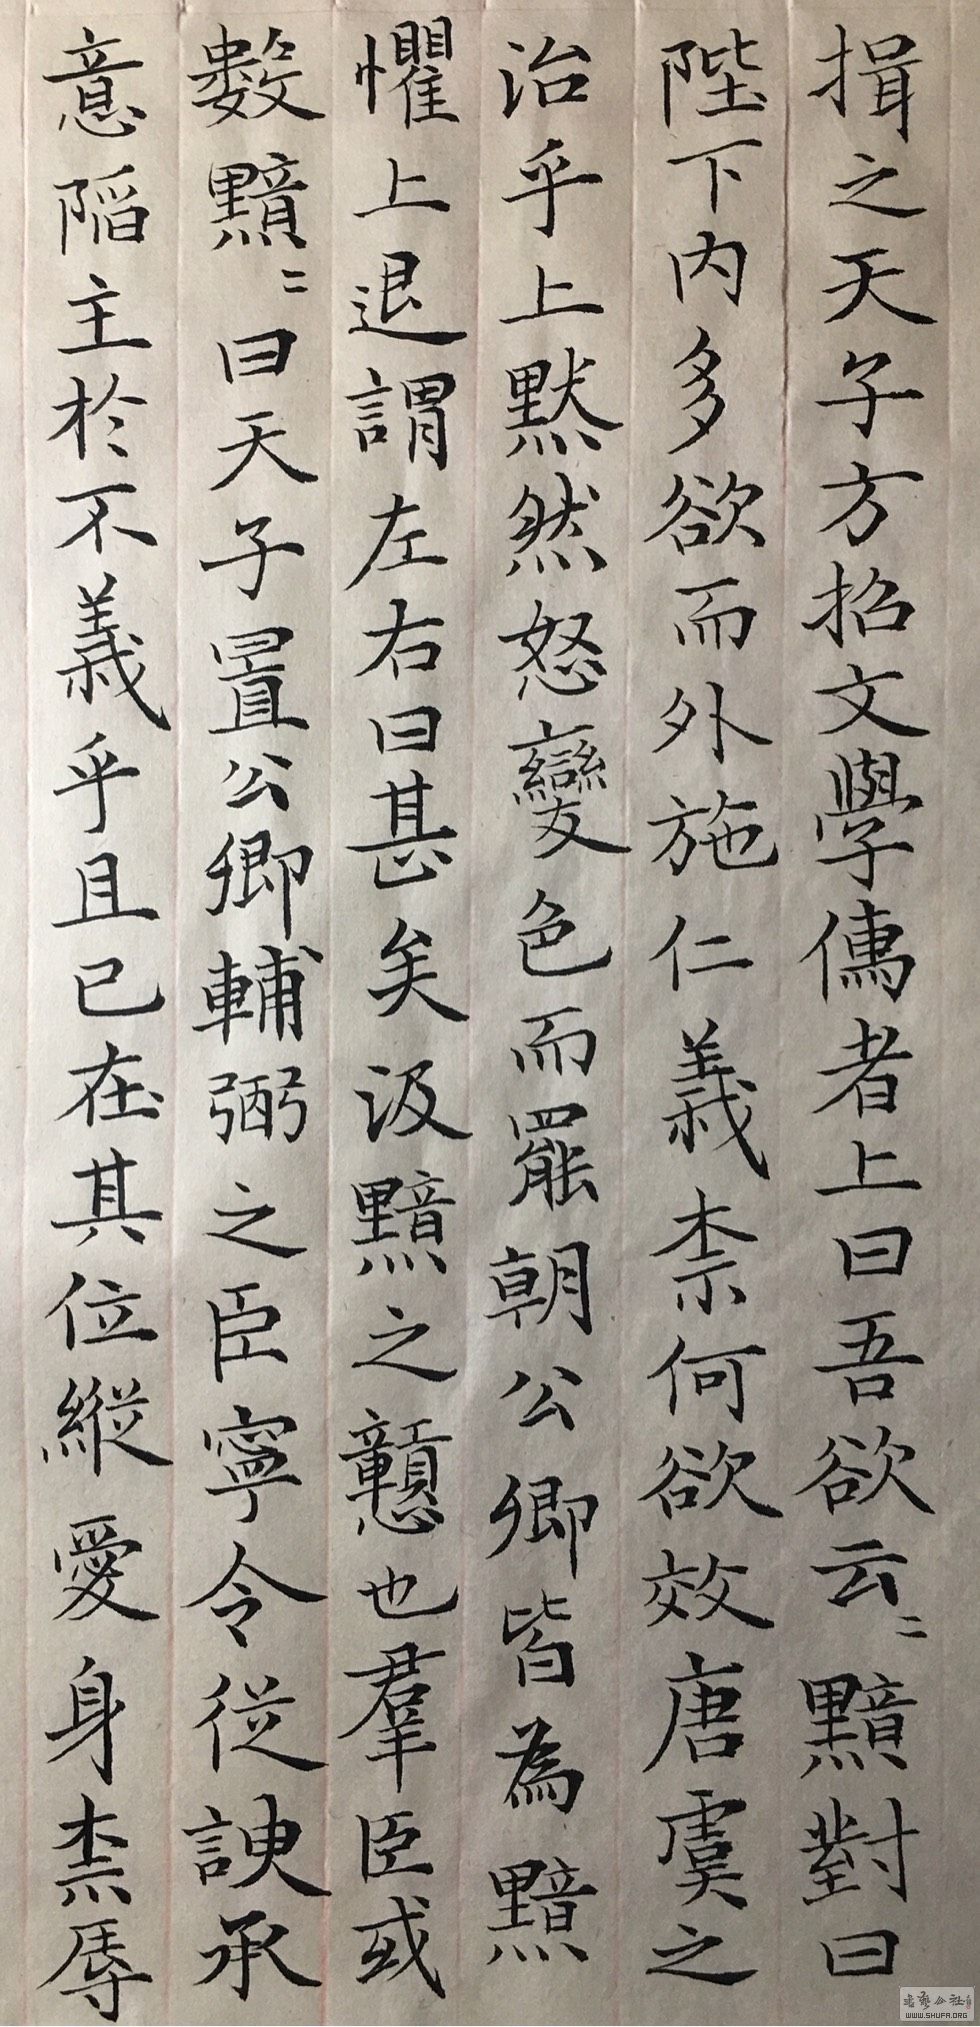 揖之天子方招文學儒者上曰吾欲云〻黯對曰
陛下內多欲而外施仁義柰何欲效唐虞之
治乎上默然怒變色而罷朝公卿皆為黯
懼上退謂左右曰甚矣汲黯之戇也羣臣或
數黯〻曰天子置公卿輔弼之臣寧令從諛承
意陷主於不義乎且已在其位縱愛身柰辱
書藝公社
WWW.SHUFA.ORG